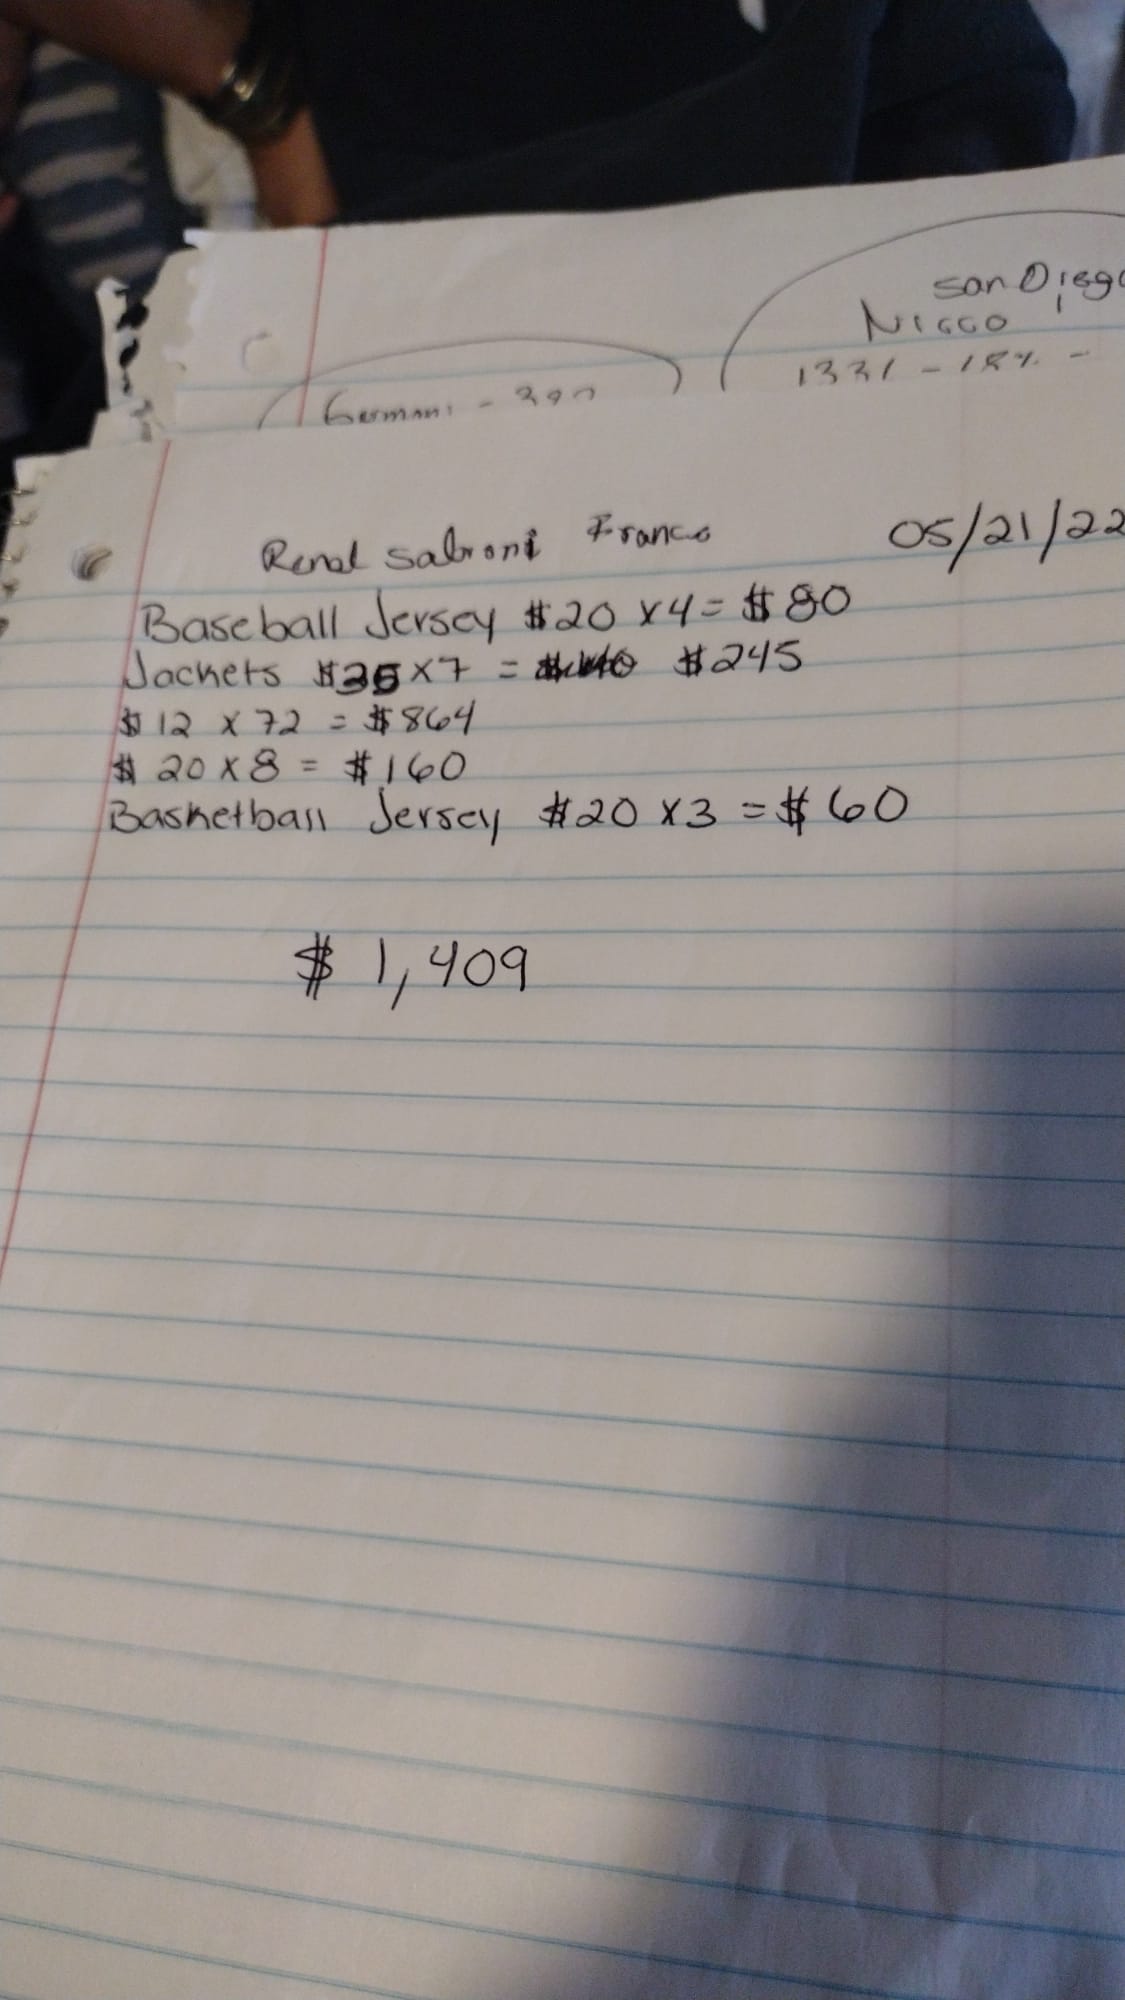 San Diego
Nicco
1331 - 18% -
Germani - 300
Renal Sabroni Franco 05/21/22
Baseball Jersey $20 x4 = $80
Jackets $35 x 7 = $245
$12 x 72 = $864
$20 x 8 = $160
Basketball Jersey $20 x3 = $60
$1,409